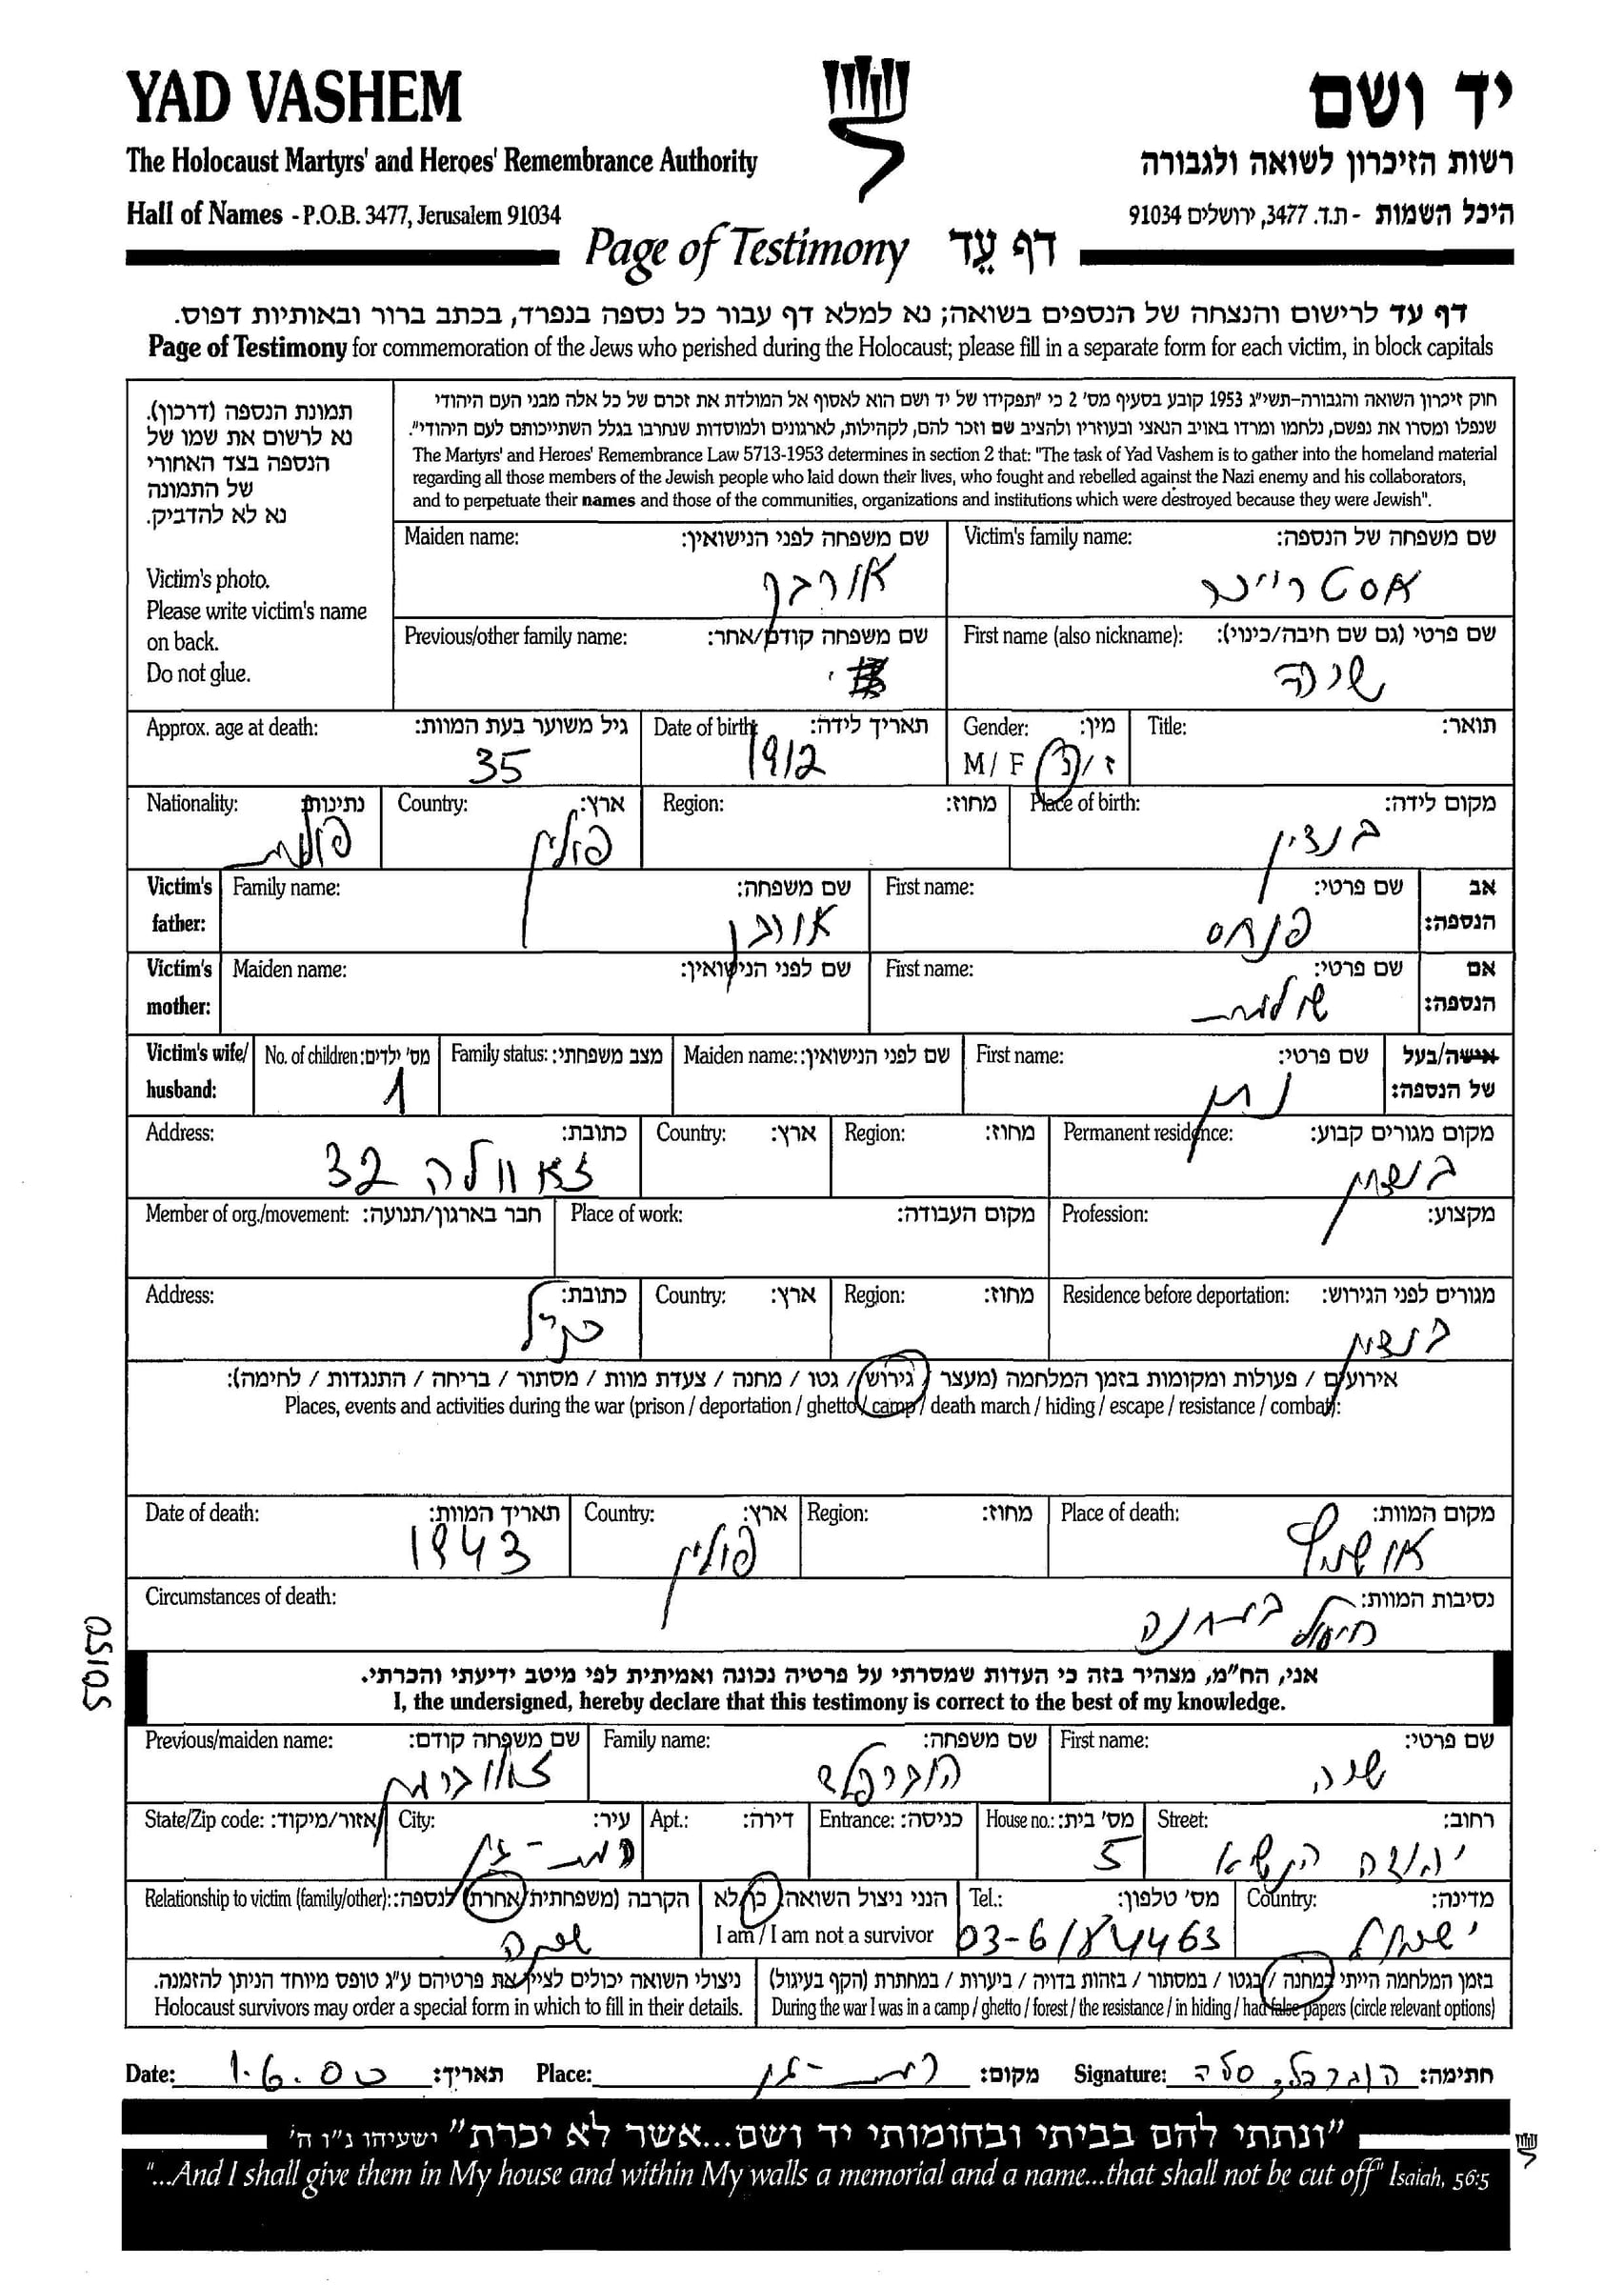 YAD VASHEM
יד ושם
The Holocaust Martyrs' and Heroes' Remembrance Authority
רשות הזיכרון לשואה ולגבורה
Hall of Names - P.O.B. 3477, Jerusalem 91034
היכל השמות - ת.ד. 3477, ירושלים 91034
Page of Testimony דף עֵד
דף עד לרישום והנצחה של הנספים בשואה; נא למלא דף עבור כל נספה בנפרד, בכתב ברור ובאותיות דפוס.
Page of Testimony for commemoration of the Jews who perished during the Holocaust; please fill in a separate form for each victim, in block capitals
תמונת הנספה (דרכון).
נא לרשום את שמו של
הנספה בצד האחורי
של התמונה
נא לא להדביק.
Victim's photo.
Please write victim's name
on back.
Do not glue.
חוק זיכרון השואה והגבורה-תשי"ג 1953 קובע בסעיף מס' 2 כי "תפקידו של יד ושם הוא לאסוף אל המולדת את זכרם של כל אלה מבני העם היהודי
שנפלו ומסרו את נפשם, נלחמו ומרדו באויב הנאצי ובעוזריו ולהציב שם וזכר להם, לקהילות, לארגונים ולמוסדות שנחרבו בגלל השתייכותם לעם היהודי".
The Martyrs' and Heroes' Remembrance Law 5713-1953 determines in section 2 that: "The task of Yad Vashem is to gather into the homeland material
regarding all those members of the Jewish people who laid down their lives, who fought and rebelled against the Nazi enemy and his collaborators,
and to perpetuate their names and those of the communities, organizations and institutions which were destroyed because they were Jewish".
Victim's family name: שם משפחה של הנספה:
אסטרייכר
Maiden name: שם משפחה לפני הנישואין:
אורבך
First name (also nickname): שם פרטי (גם שם חיבה/כינוי):
שינה
Previous/other family name: שם משפחה קודם/אחר:
Title: תואר:
Gender: מין:
M / F ז / נ
Date of birth: תאריך לידה:
1912
Approx. age at death: גיל משוער בעת המוות:
35
Place of birth: מקום לידה:
בנדין
Region: מחוז:
Country: ארץ:
פולין
Nationality: נתינות:
פולנית
Victim's father: אב הנספה:
First name: שם פרטי:
פנחס
Family name: שם משפחה:
Victim's mother: אם הנספה:
First name: שם פרטי:
שולמית
Maiden name: שם לפני הנישואין:
Victim's wife/ husband: אישה/בעל של הנספה:
First name: שם פרטי:
נתן
Maiden name: שם לפני הנישואין:
Family status: מצב משפחתי:
No. of children: מס' ילדים:
1
Permanent residence: מקום מגורים קבוע:
בנדין
Region: מחוז:
Country: ארץ:
Address: כתובת:
זאוולה 32
Profession: מקצוע:
Place of work: מקום העבודה:
Member of org./movement: חבר בארגון/תנועה:
Residence before deportation: מגורים לפני הגירוש:
בנדין
Region: מחוז:
Country: ארץ:
Address: כתובת:
כנ"ל
אירועים / פעולות ומקומות בזמן המלחמה (מעצר / גירוש / גטו / מחנה / צעדת מוות / מסתור / בריחה / התנגדות / לחימה):
Places, events and activities during the war (prison / deportation / ghetto / camp / death march / hiding / escape / resistance / combat):
Place of death: מקום המוות:
אושוויץ
Region: מחוז:
Country: ארץ:
פולין
Date of death: תאריך המוות:
1943
Circumstances of death: נסיבות המוות:
חיסול במחנה
05105
אני, הח"מ, מצהיר בזה כי העדות שמסרתי על פרטיה נכונה ואמיתית לפי מיטב ידיעתי והכרתי.
I, the undersigned, hereby declare that this testimony is correct to the best of my knowledge.
First name: שם פרטי:
Family name: שם משפחה:
Previous/maiden name: שם משפחה קודם:
Street: רחוב:
יהודה הנשיא
House no.: מס' בית:
5
Entrance: כניסה:
Apt.: דירה:
City: עיר:
רמת-גן
State/Zip code: אזור/מיקוד:
Country: מדינה:
ישראל
Tel.: מס' טלפון:
03-6184463
הנני ניצול השואה: כן/לא
I am / I am not a survivor
Relationship to victim (family/other): הקרבה (משפחתית/אחרת) לנספה:
שכנה
בזמן המלחמה הייתי במחנה / בגטו / במסתור / בזהות בדויה / ביערות / במחתרת (הקף בעיגול)
During the war I was in a camp / ghetto / forest / the resistance / in hiding / had false papers (circle relevant options)
ניצולי השואה יכולים לציין את פרטיהם ע"ג טופס מיוחד הניתן להזמנה.
Holocaust survivors may order a special form in which to fill in their details.
Date: 1.6.00 תאריך: Place: רמת-גן מקום: Signature: חתימה:
"ונתתי להם בביתי ובחומותי יד ושם...אשר לא יכרת" ישעיהו נ"ו ה'
"...And I shall give them in My house and within My walls a memorial and a name...that shall not be cut off" Isaiah, 56:5